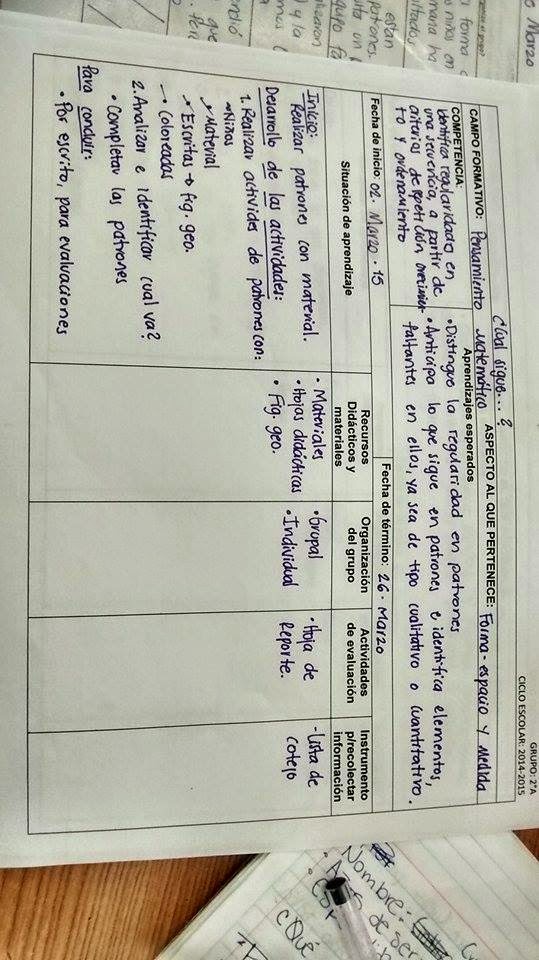 GRUPO: 2°A
CICLO ESCOLAR: 2014-2015
¿Cúal sigue...?
CAMPO FORMATIVO: Pensamiento Matemático
ASPECTO AL QUE PERTENECE: Forma-espacio y Medida
COMPETENCIA:
Identifica regularidades en
una secuencia, a partir de
criterios de repetición, crecimien-
to y ordenamiento
Aprendizajes esperados
• Distingue la regularidad en patrones
• Anticipa lo que sigue en patrones e identifica elementos,
faltantes en ellos, ya sea de tipo cualitativo o cuantitativo.
Fecha de inicio: 02. Marzo. 15
Fecha de término: 26. Marzo
Situación de aprendizaje
Recursos
Didácticos y
materiales
Organización
del grupo
Actividades
de evaluación
Instrumento
p/recolectar
información
Inicio:
Realizar patrones con material.
Desarrollo de las actividades:
1. Realizar activides de patrones con:
Niños
Material
Escritas → fig. geo.
Coloreadas
2. Analizar e identificar cual va?
• Completar las patrones
Para concluir:
• Por escrito, para evaluaciones
• Materiales
• Hojas didácticas
• Fig. geo.
• Grupal
• Individual
• Hoja de
Reporte.
- Lista de
cotejo
Marzo
están
patrones.
que
Nombre:
de ser
¿Qué